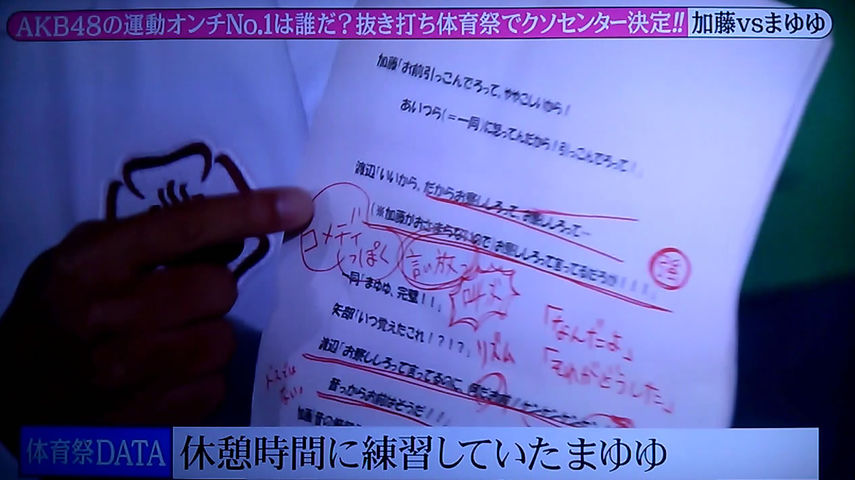 AKB48の運動オンチNo.1は誰だ?抜き打ち体育祭でクソセンター決定!! 加藤vsまゆゆ
加藤「お前引っこんでろって、ややこしいから!
あいつら(=一同)に怒ってんだから!引っこんでろって!」
渡辺「いいから、だからお察ししろって、お察ししろって…
(※加藤がおさまらないので)お察ししろって言ってるだろが!!!」
コメディっぽく
言い放つ
一同「まゆゆ、完璧!!」
叫ぶ
「なんだよ」
矢部「いつ覚えたこれ!?!?」
リズム
「それがどうした」
渡辺「お察ししろって言ってるのに、
昔っからお前はそうだ!!」
体育祭DATA
休憩時間に練習していたまゆゆ